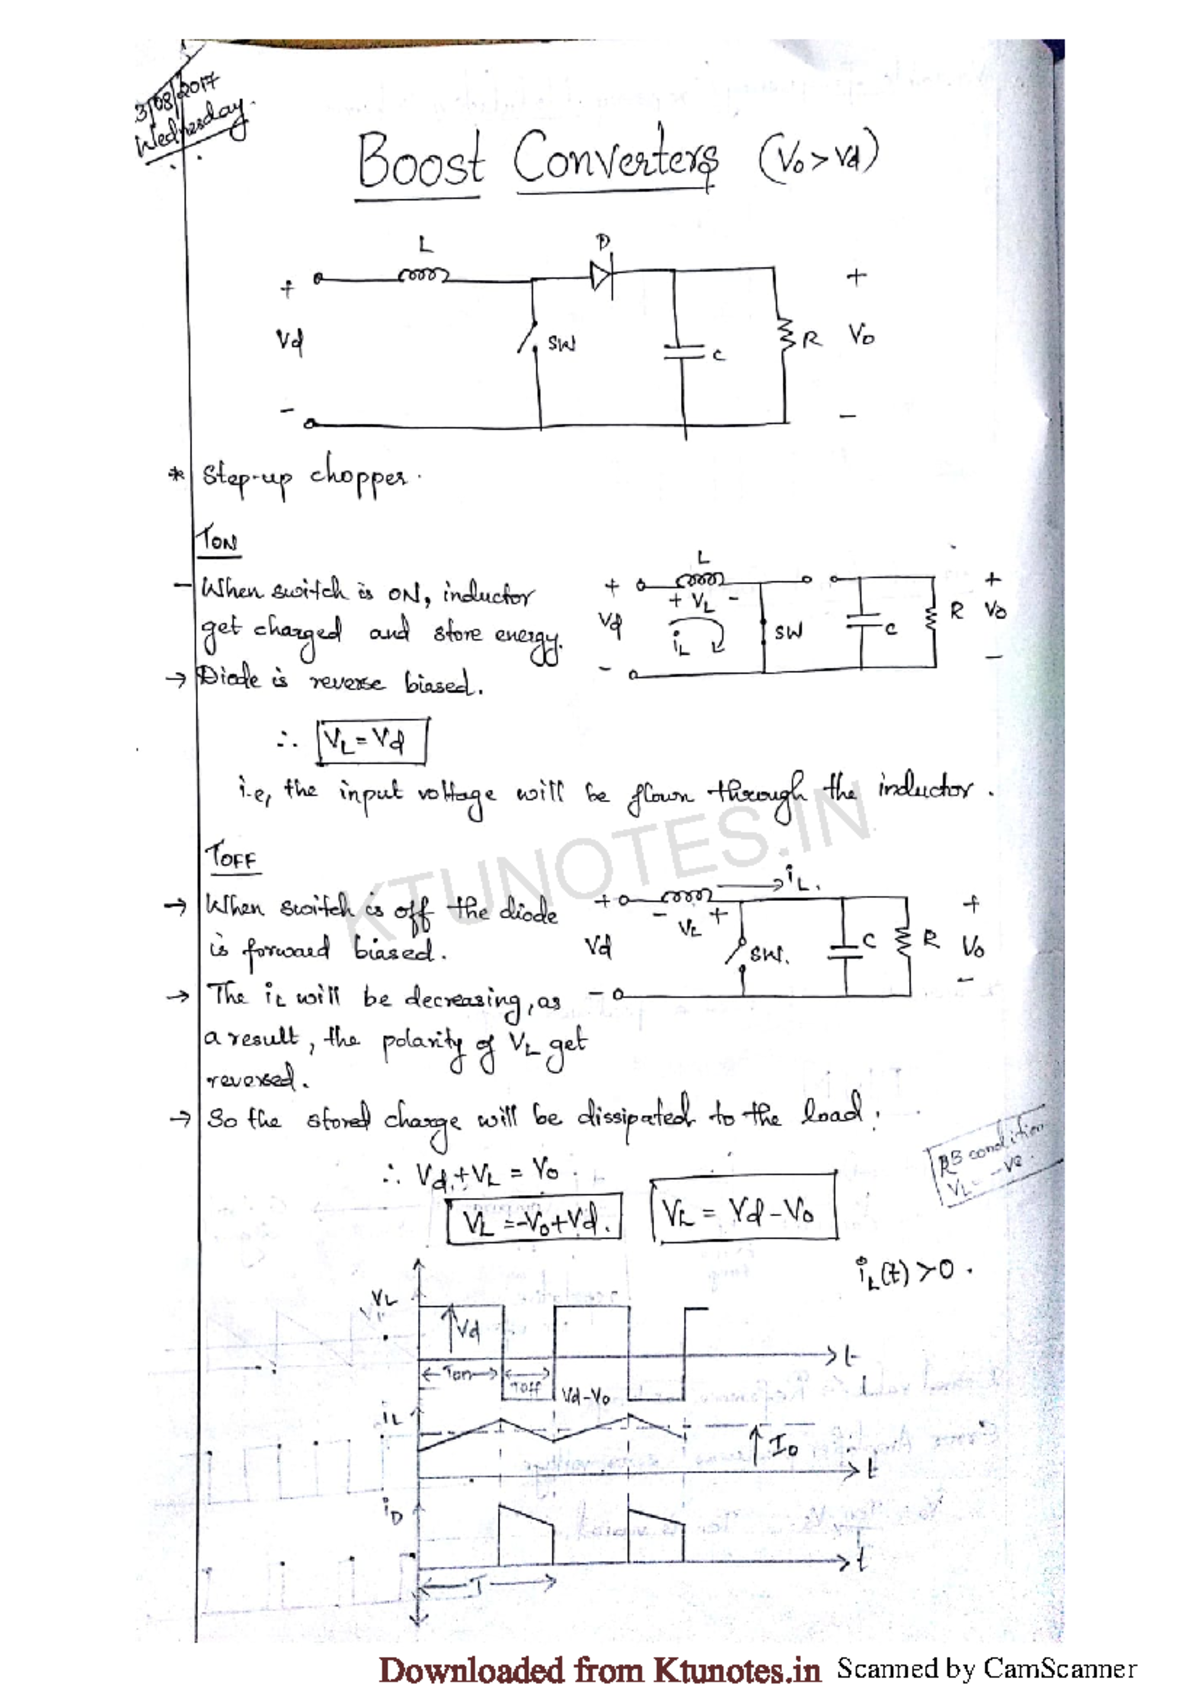 3/08/2017
Wednesday.
Boost Converters (Vo > Vd)
L
D
+
+
Vd
SW
C
R
Vo
-
-
* Step-up chopper.
TON
- When switch is ON, inductor
get charged and store energy.
→ Diode is reverse biased.
L
+
+ VL -
Vd
iL
SW
C
R
+
Vo
-
-
∴ VL = Vd
i.e, the input voltage will be flown through the inductor.
KTUNOTES.IN
TOFF
→ When switch is off the diode
is forward biased.
→ The iL will be decreasing, as
a result, the polarity of VL get
reversed.
→ So the stored charge will be dissipated to the load.
iL.
+
- VL +
Vd
SW.
C
R
+
Vo
-
-
∴ Vd + VL = Vo.
VL = -Vo + Vd.
VL = Vd - Vo
RB condition
VL = -ve.
iL(t) > 0.
VL
Vd
t
Ton
Toff
Vd-Vo
iL
Io
t
iD
t
T
Downloaded from Ktunotes.in
Scanned by CamScanner